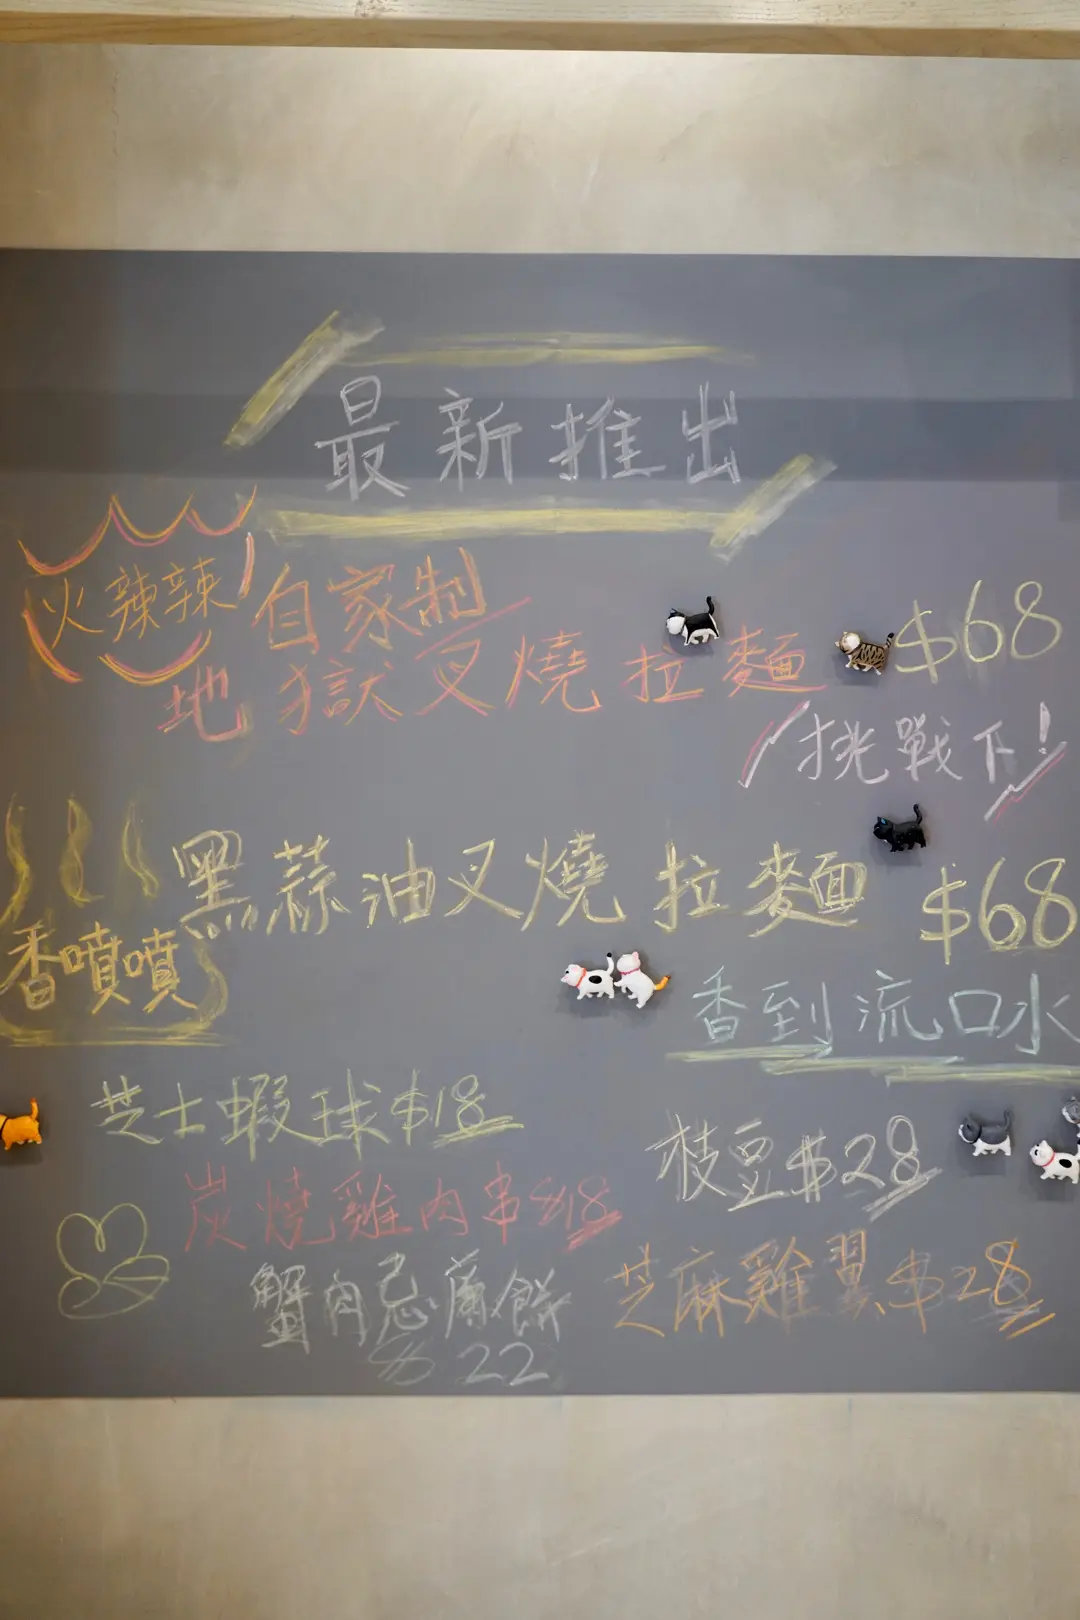 最新推出
火辣辣 自家制
地獄叉燒拉麵 $68
挑戰下!
黑蒜油叉燒拉麵 $68
香噴噴
香到流口水
芝士蝦球$18
枝豆$28
炭燒雞肉串$18
芝麻雞翼$28
蟹肉忌廉餅
$22